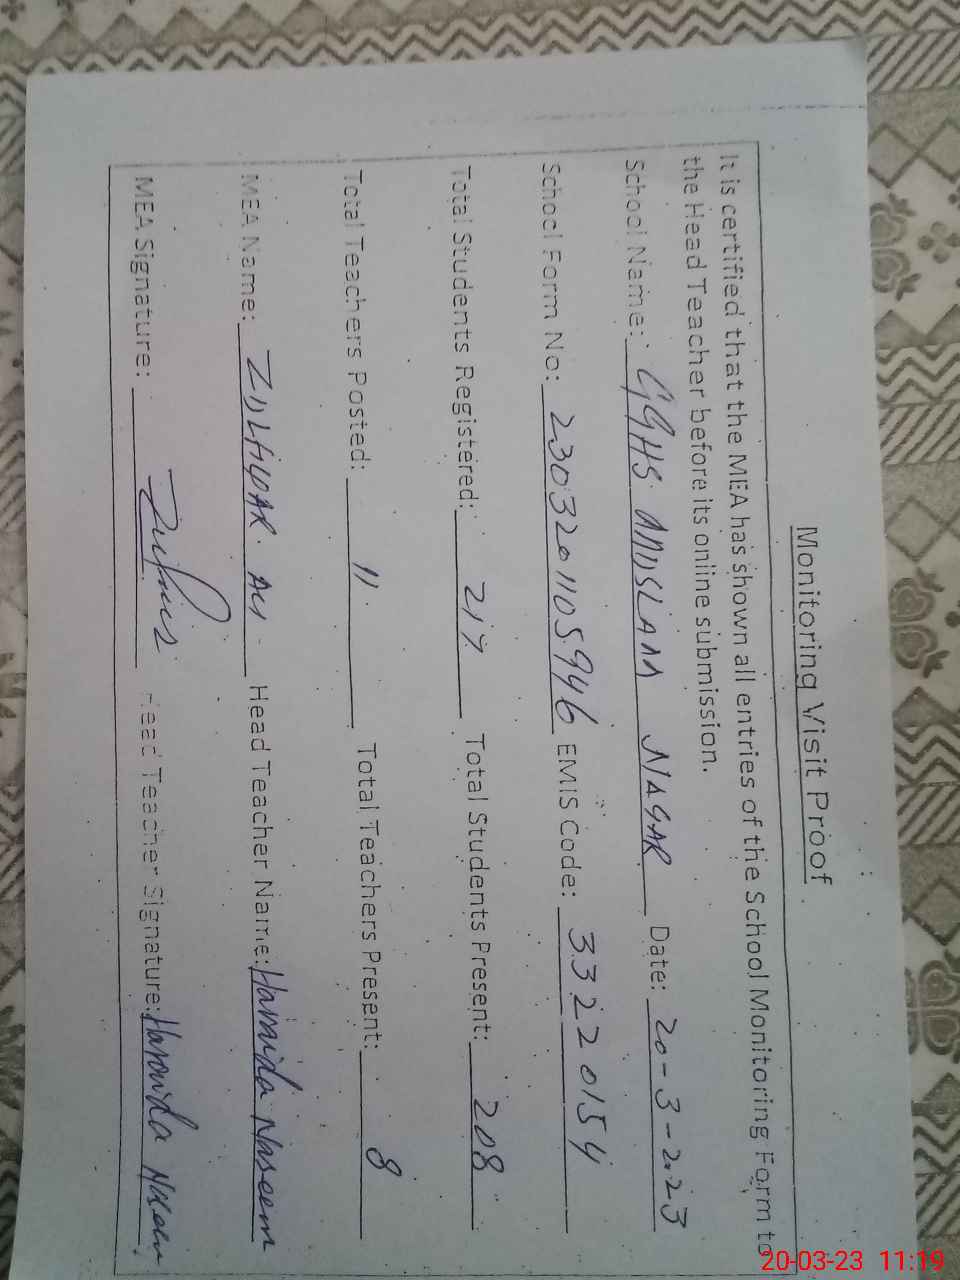 Monitoring Visit Proof
It is certified that the MEA has shown all entries of the School Monitoring Form to
the Head Teacher before its online submission.
School Name: GGHS NAGAR Date: 20-3-2023
School Form No: 2303201105946 EMIS Code: 33220154
Total Students Registered: 217 Total Students Present: 208
Total Teachers Posted: 11 Total Teachers Present: 8
MEA Name: ZULFIQAR ALI Head Teacher Name: Hamida Naseem
MEA Signature: Head Teacher Signature: Hamida Naseem
20-03-23 11:19